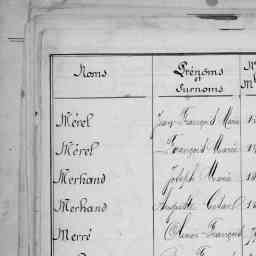 Noms
Prénoms
et
Surnoms
Mérel Jean François Marie
Mérel François Marie
Merhand Joseph Marie
Merhand Auguste
Merré Olivier François